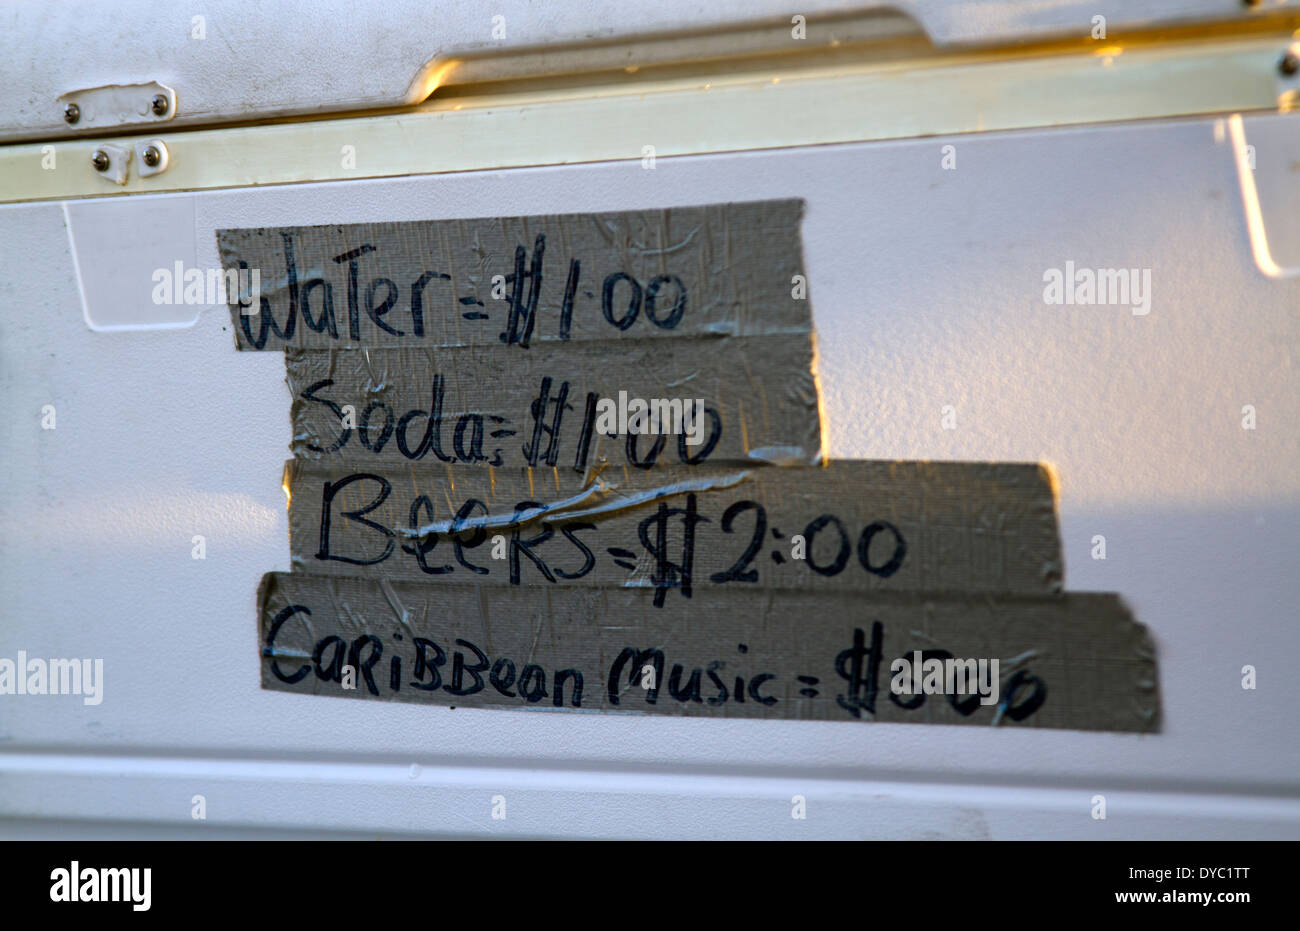 WaTer = $1.00
Soda = $1.00
BeeRs = $2:00
CaRiBBean Music = $5.00
alamy
Image ID: DYC1TT
www.alamy.com